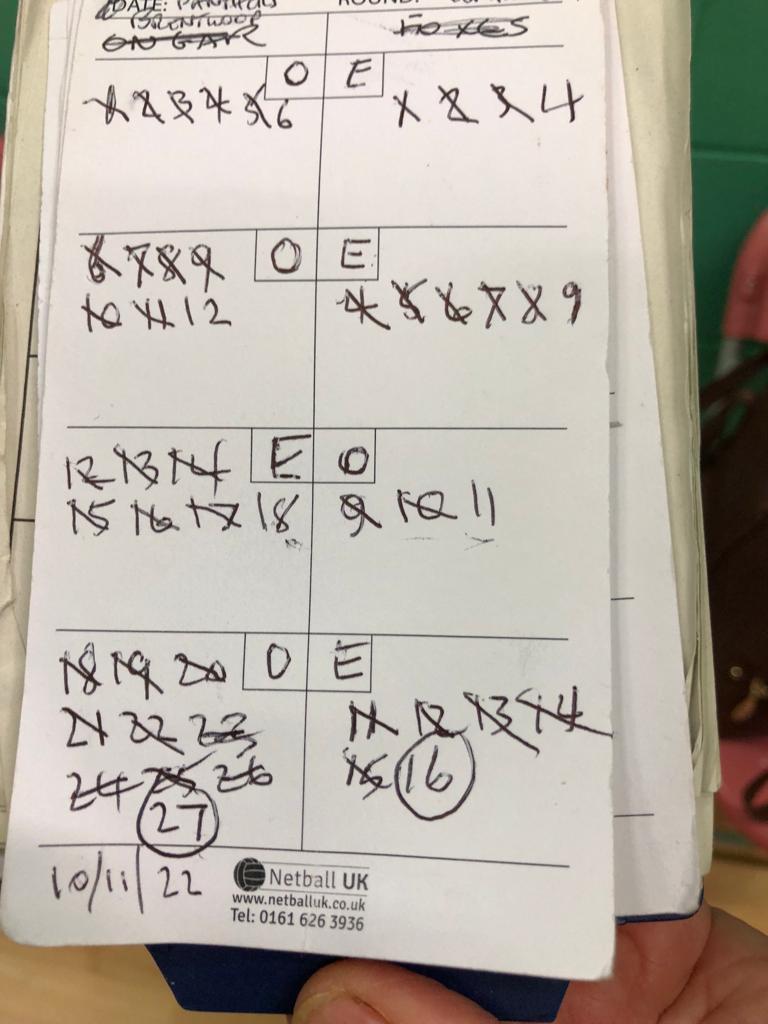 DATE: PANTHERS ROUND:
BRENTWOOD
ONGAR FOXES
O E
1 2 3 4 5 6 1 2 3 4
6 7 8 9 O E
10 11 12 4 5 6 7 8 9
12 13 14 E O
15 16 17 18 9 10 11
18 19 20 O E
21 22 23 11 12 13 14
24 25 26 15 16
27
10/11/22 Netball UK
www.netballuk.co.uk
Tel: 0161 626 3936